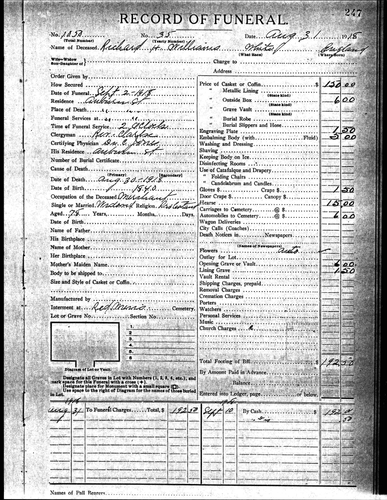 247
RECORD OF FUNERAL.
No. 1050 No. 35 Date Aug 31 1918
(Total Number) (Yearly Number)
Name of Deceased Richard H Williams White England
(What Race) (Where Born)
Charge to
Address
Order Given by
How Secured
Date of Funeral Sept 2 - 1918
Residence Auburn St
Place of Death
Funeral Services at
Time of Funeral Service 2 O'clock
Clergyman Rev.
Certifying Physician Dr. E Jones
His Residence Auburn St
Number of Burial Certificate
Cause of Death
Date of Death Aug 30 - 1918
Date of Birth 1840
Occupation of the Deceased Merchant
Single or Married Religion
Aged 78 Years, Months, Days.
Date of Birth
Name of Father
His Birthplace
Name of Mother
Her Birthplace
Mother's Maiden Name
Body to be shipped to
Size and Style of Casket or Coffin.
Manufactured by
Interment at Cemetery.
Lot or Grave No. Section No.
1
2
3
4
5
6
7
8
Diagram of Lot or Vault.
Designate all Graves in Lot with Numbers (1, 2, 3, 4, etc.), and mark space for this Funeral with a cross (+)
Designate place for Monument with a small square
Use space to the right of Diagram for the names of those buried in Lot.
Price of Casket or Coffin $ 150.00
" Metallic Lining
" Outside Box 6 00
" Grave Vault
" Burial Robe
" Burial Slippers and Hose
Engraving Plate 1.50
Embalming Body (with Fluid) 5.00
Washing and Dressing
Shaving
Keeping Body on Ice
Disinfecting Rooms
Use of Catafalque and Drapery
" Folding Chairs
" Candelabrum and Candles
Gloves $ Crape $ 1.50
Door Crape $ Canopy $
Hearse 15.00
Carriages to Cemetery @ $
Automobiles to Cemetery @ $ 6.00
Wagon Deliveries
City Calls (Coaches)
Death Notices in Newspapers
(Names of Newspapers)
Flowers
Outlay for Lot
Opening Grave or Vault 6.00
Lining Grave 1.50
Vault Rental
Shipping Charges, prepaid
Removal Charges
Cremation Charges
Porters
Watchers
Personal Services
Music
Church Charges
Total Footing of Bill $ 192.50
By Amount Paid in Advance
Balance
Entered into Ledger, page or below.
Aug 31 To Funeral Charges, Total, $ 192 50 Sept 10 By Cash $ 192 50
Names of Pall Bearers